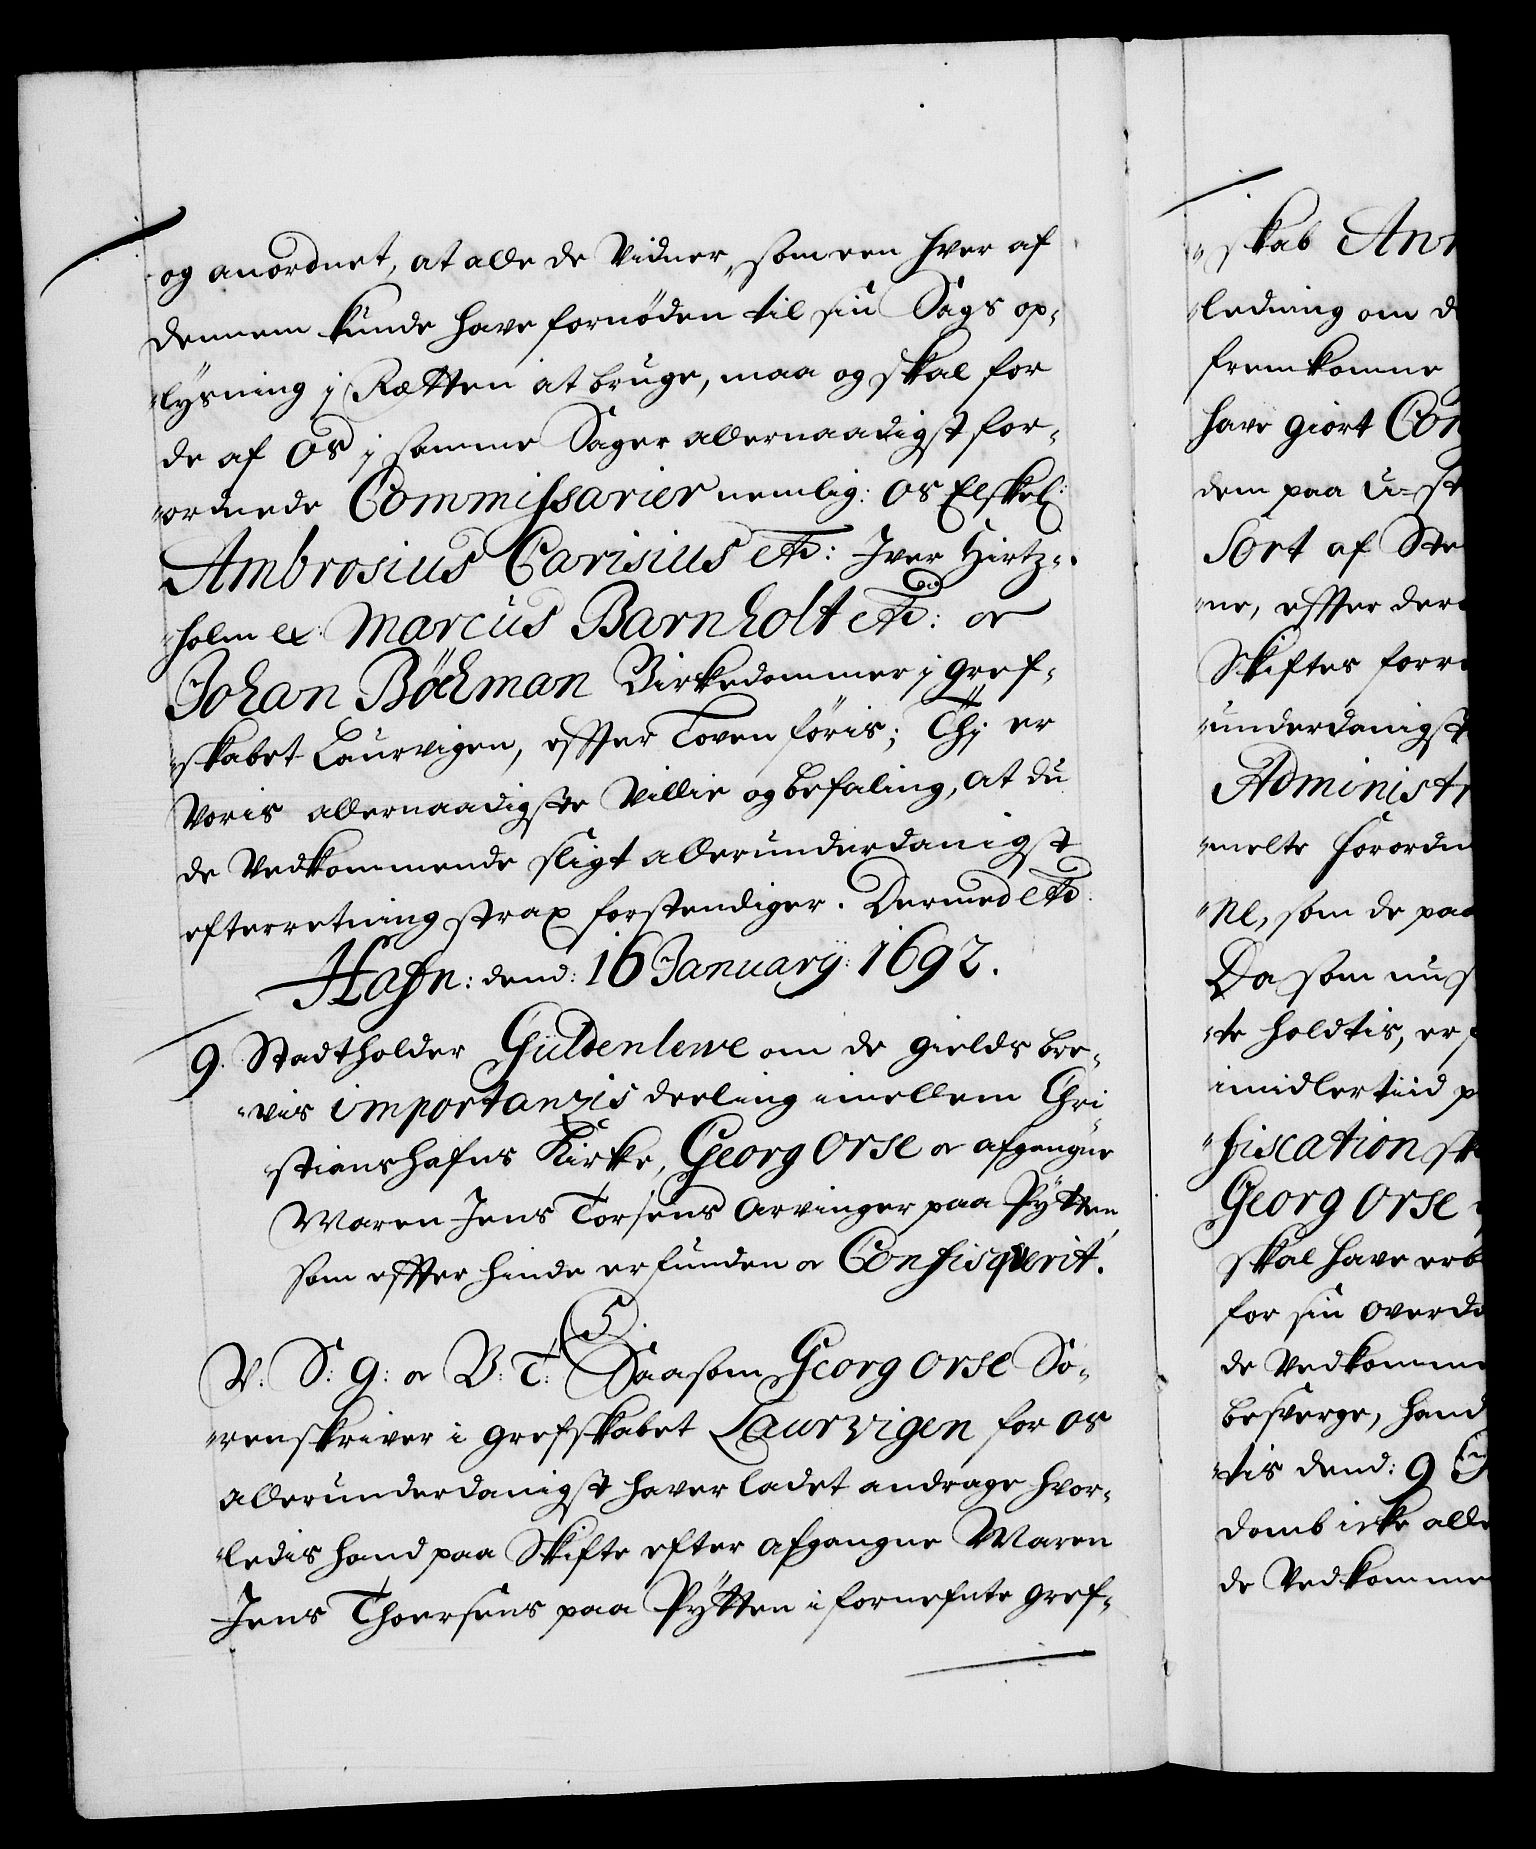 og anordnet, at alle de Vidner, som een hver af
dennem kunde have fornöden til sin Sags op-
lysning j Rætten at bruge, maa og skal for
de af Os j samme Sager allernaadigst for-
ordnede Commissarier nemlig: Os Elskel:
Ambrosius Carisius etc: Iver Hirtz-
holm etc: Marcus Barnholt etc: oc
Johan Böchman Birkedommer j gref-
skabet Laurvigen, effter Loven föris; Thj er
Voris allernaadigste Villie og befaling, at du
de Vedkommende sligt allerunderdanigst
efterretning strax forstendiger. Dermed etc.
Hafn: dend: 16 Januarij: 1692.
9. Stadtholder Güldenlewe om de gields bre-
vis importanzis deeling imellem Chri
stianshafns Kirke, Georg Orse oc afgangne
Maren Jens Torsens Arvinger paa Pytten,
som effter hinde er funden oc Confisqverit.
V. S: G: oc B: T: Saasom Georg Orse So-
renskriver i grefskabet Laurvigen for os
allerunderdanigst haver ladet andrage hvor-
ledis hand paa Skifte efter afgangne Maren
Jens Thoersens paa Pytten i fornefnte gref-
skab
ledning om
fremkomme
have giort
dem paa
Sort af
ne, effter
Skiftes
underdanigst
melte
Ne, som de
Da som nu
te holdtis, er
imidlertiid
fiscation
Georg Orse
skal have
for sin
de
besverge, hand
tis dend: 9
domb icke
de